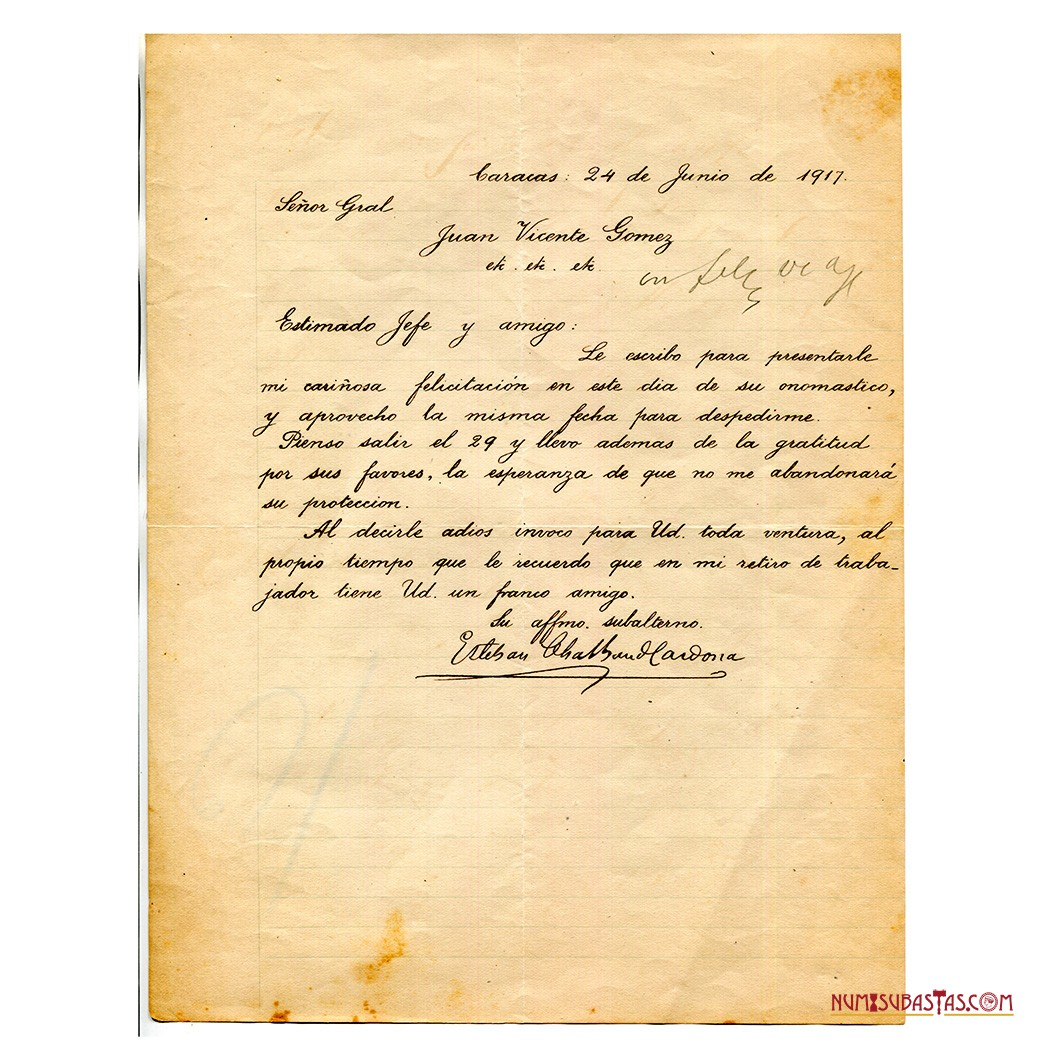 Caracas: 24 de Junio de 1917.
Señor Gral.
Juan Vicente Gomez
etc. etc. etc.
Estimado Jefe y amigo:
Le escribo para presentarle
mi cariñosa felicitación en este dia de su onomastico,
y aprovecho la misma fecha para despedirme.
Pienso salir el 29 y llevo ademas de la gratitud
por sus favores, la esperanza de que no me abandonará
su proteccion.
Al decirle adios invoco para Ud. toda ventura, al
propio tiempo que le recuerdo que en mi retiro de traba-
jador tiene Ud. un franco amigo.
Su affmo. subalterno.
Esteban Chalbaud Cardona
NUMISUBASTAS.COM